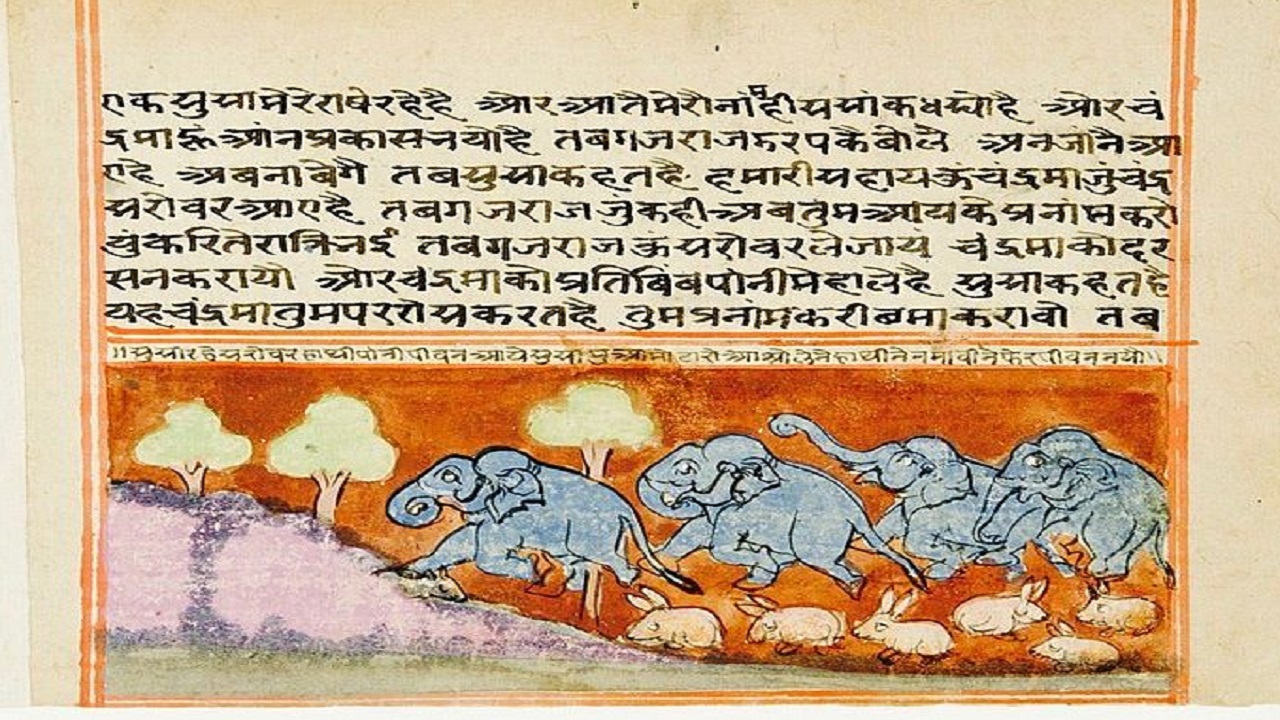 एक सुसामेरेराषेरहेहै ओरआतैमेरोनांमहीससांकधस्योहै ओरचं
द्रमाहूआंनप्रकासनयोहै तबगजराजडरपकेबोले अनजांनैआ
एहै अबनांवेगै तबसुसाकहतहै हमारीसहायऊंचंद्रमाजुंचंद्र
सरोवरआएहै तबगजराजजुकहीअबतुमआयकेप्रनांमकरो
युंकरितेरात्रिनई तबगजराजऊंसरोवरलेजाय चंद्रमाकोदर
सनकरायो ओरचंद्रमाकोप्रतिबिंबपांनीमेहालेहै सुसाकहतहै
यहचंद्रमातुमपररोसकरतहै तुमप्रनांमकरीषमाकरावो तब